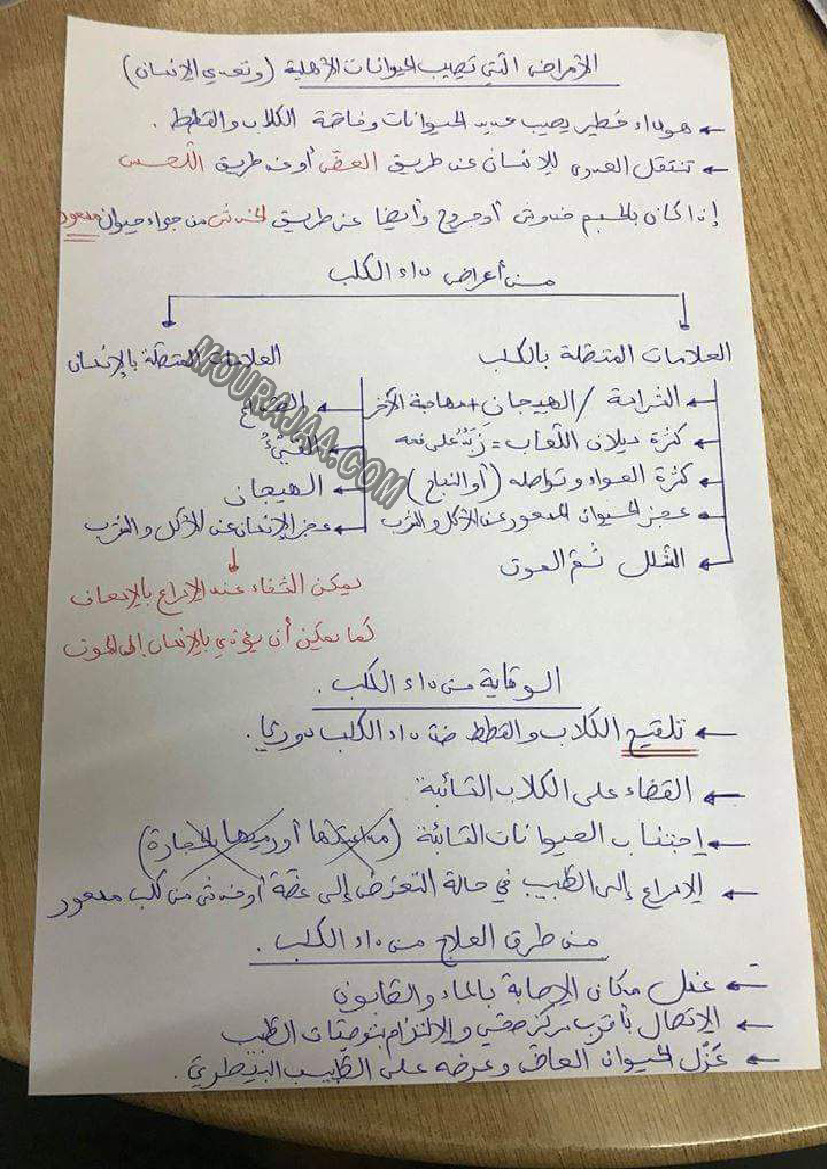 الأمراض التي تصيب الحيوانات الأهلية (وتعدي الإنسان)
← هو داء خطير يصيب عديد الحيوانات وخاصة الكلاب والقطط.
← تنتقل العدوى للإنسان عن طريق العض أو عن طريق اللحس
إذا كان بالجسم خدوش أو جروح وأيضا عن طريق الخدش من جراء حيوان مسعور
من أعراض داء الكلب
العلامات المتصلة بالكلب
← الشراسة / الهيجان + مهاجمة الآخر
← كثرة سيلان اللعاب = زبد على فمه
← كثرة العواء وتواصله (أو النباح)
← عجز الحيوان المسعور عن الأكل والشرب
← الشلل ثم الموت
العلامات المتصلة بالإنسان
← القيء
← الهيجان
← عجز الإنسان عن الأكل والشرب
يمكن الشفاء عند الإسراع بالإسعاف
كما يمكن أن يؤدي بالإنسان إلى الموت
الوقاية من داء الكلب.
← تلقيح الكلاب والقطط ضد داء الكلب دوريا.
← القضاء على الكلاب السائبة
← اجتناب الحيوانات السائبة (مداعبتها أو رميها بالحجارة)
← الإسراع إلى الطبيب في حالة التعرض إلى عضة أو خدش من كلب مسعور
من طرق العلاج من داء الكلب.
← غسل مكان الإصابة بالماء والصابون
← الإتصال بأقرب مركز صحي والإلتزام بتوصيات الطبيب
← عزل الحيوان العاض وعرضه على الطبيب البيطري.
MOURAJAA.COM